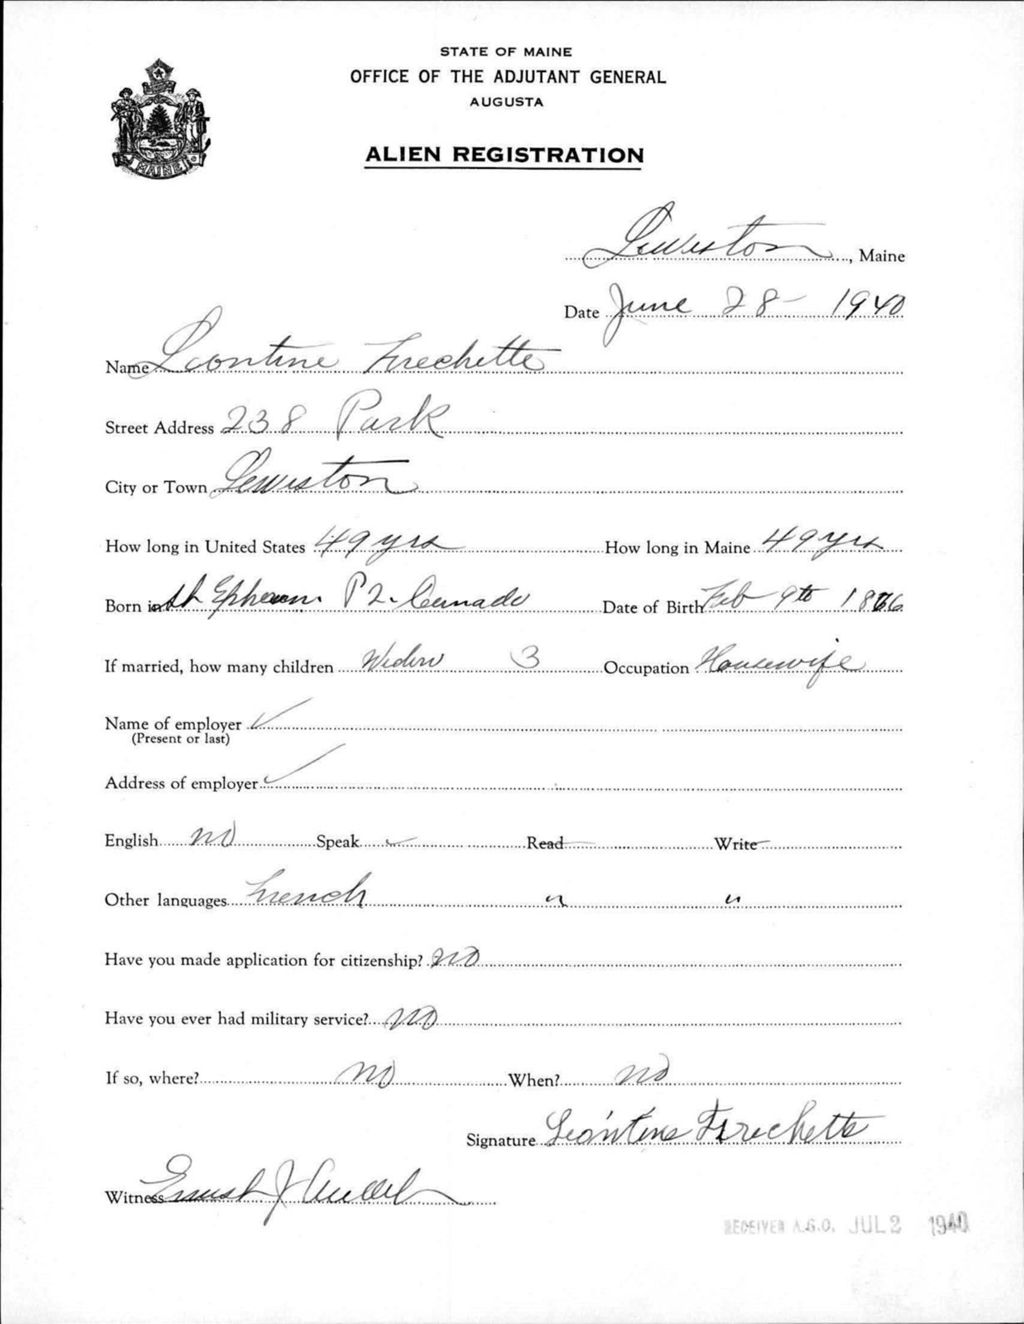 STATE OF MAINE
OFFICE OF THE ADJUTANT GENERAL
AUGUSTA
MAINE
ALIEN REGISTRATION
Lewiston, Maine
Date June 28 - 1940
Name Leontine Frechette
Street Address 238 Park
City or Town Lewiston
How long in United States 49 yrs How long in Maine 49 yrs
Born in St Ephrem P2. Canada Date of Birth Feb 9th
If married, how many children Widow 3 Occupation Housewife
Name of employer ✓
(Present or last)
Address of employer ✓
English no Speak ✓ Read Write
Other languages French " "
Have you made application for citizenship? no
Have you ever had military service? no
If so, where? no When? no
Signature Léontine Frechette
Witness J
RECEIVED A.G.O. JUL 2 1940